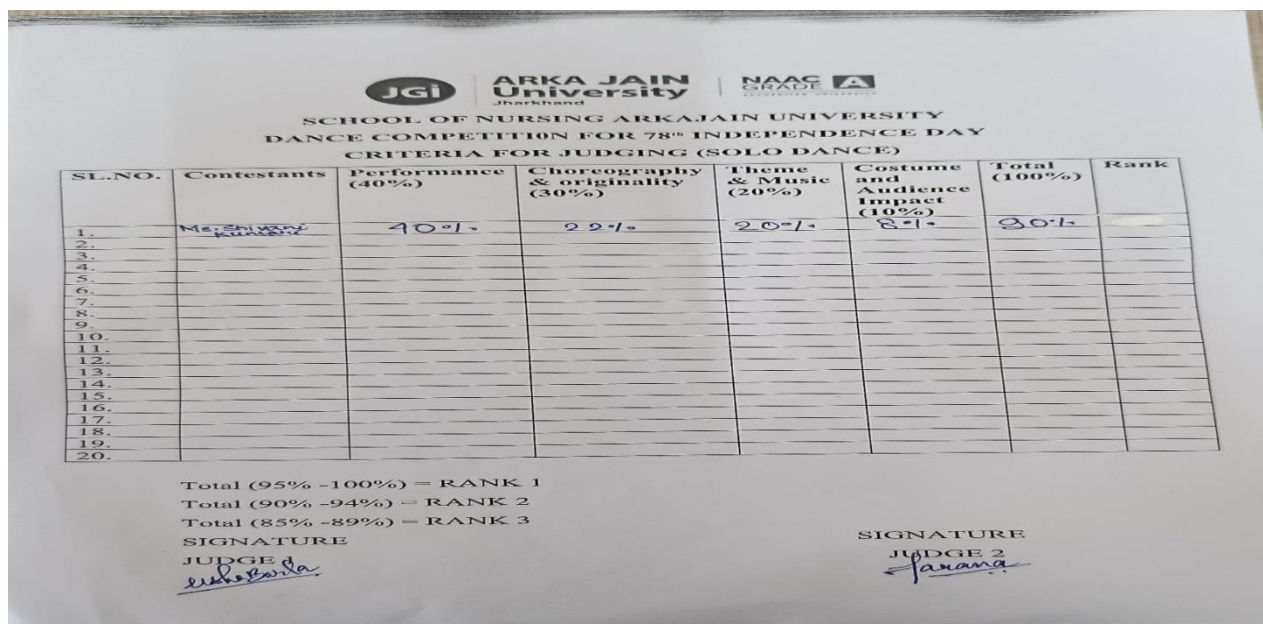 JGi ARKA JAIN University Jharkhand NAAC GRADE A
SCHOOL OF NURSING ARKAJAIN UNIVERSITY
DANCE COMPETITI0N FOR 78th INDEPENDENCE DAY
CRITERIA FOR JUDGING (SOLO DANCE)
SL.NO. Contestants Performance (40%) Choreography & originality (30%) Theme & Music (20%) Costume and Audience Impact (10%) Total (100%) Rank
1. Ms. Shivani Kumari 40% 22% 20% 8% 90%
2.
3.
4.
5.
6.
7.
8.
9.
10.
11.
12.
13.
14.
15.
16.
17.
18.
19.
20.
Total (95% -100%) = RANK 1
Total (90% -94%) = RANK 2
Total (85% -89%) = RANK 3
SIGNATURE SIGNATURE
JUDGE 1 JUDGE 2